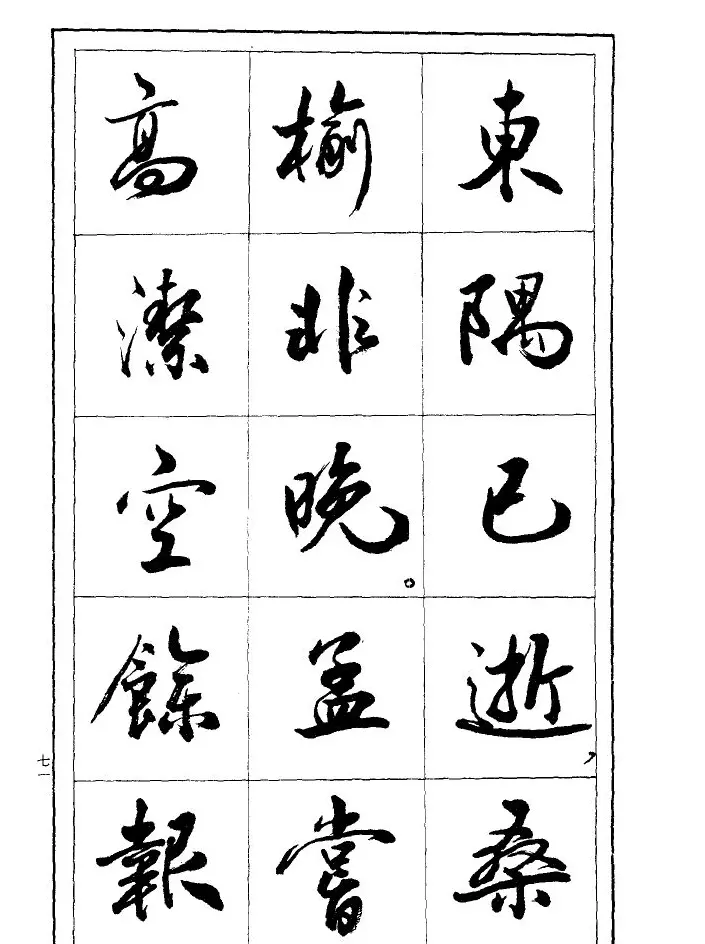 東隅已逝，桑
榆非晚。孟嘗
高潔空餘報
七一